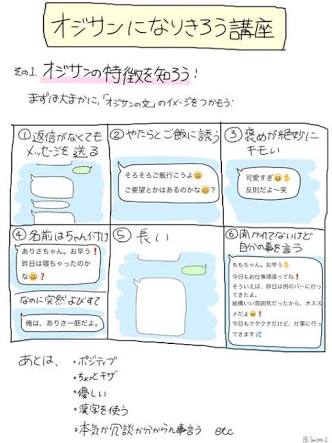 オジサンになりきろう講座
その1. オジサンの特徴を知ろう!
まずは大まかに、「オジサンの文」のイメージをつかもう!
①返信がなくても
メッセージを送る
②やたらとご飯に誘う
そろそろご飯行こうよ😀
ご要望とかはあるのかな😀?
③褒めが絶妙に
キモい
可愛すぎ😀✋
反則だよ〜笑
④名前はちゃん付け
ありさちゃん。お早う❗
昨日は寝ちゃったのか
な😀❓
なのに突然よびすて
俺は、ありさ一筋だよ。
⑤長い
⑥聞かれてないけど
自分の事を言う
ももちゃん。お早う✋
今日もお仕事頑張ってね❗
そういえば、昨日は例のバーに行っ
てきたよ。
結構いい雰囲気だったから、オスス
メだよ😀❗
今日もクタクタだけど、仕事に行っ
てきます💦
あとは、
・ポジティブ
・ちょっとキザ
・優しい
・漢字を使う
・本気か冗談か分からん事言う etc